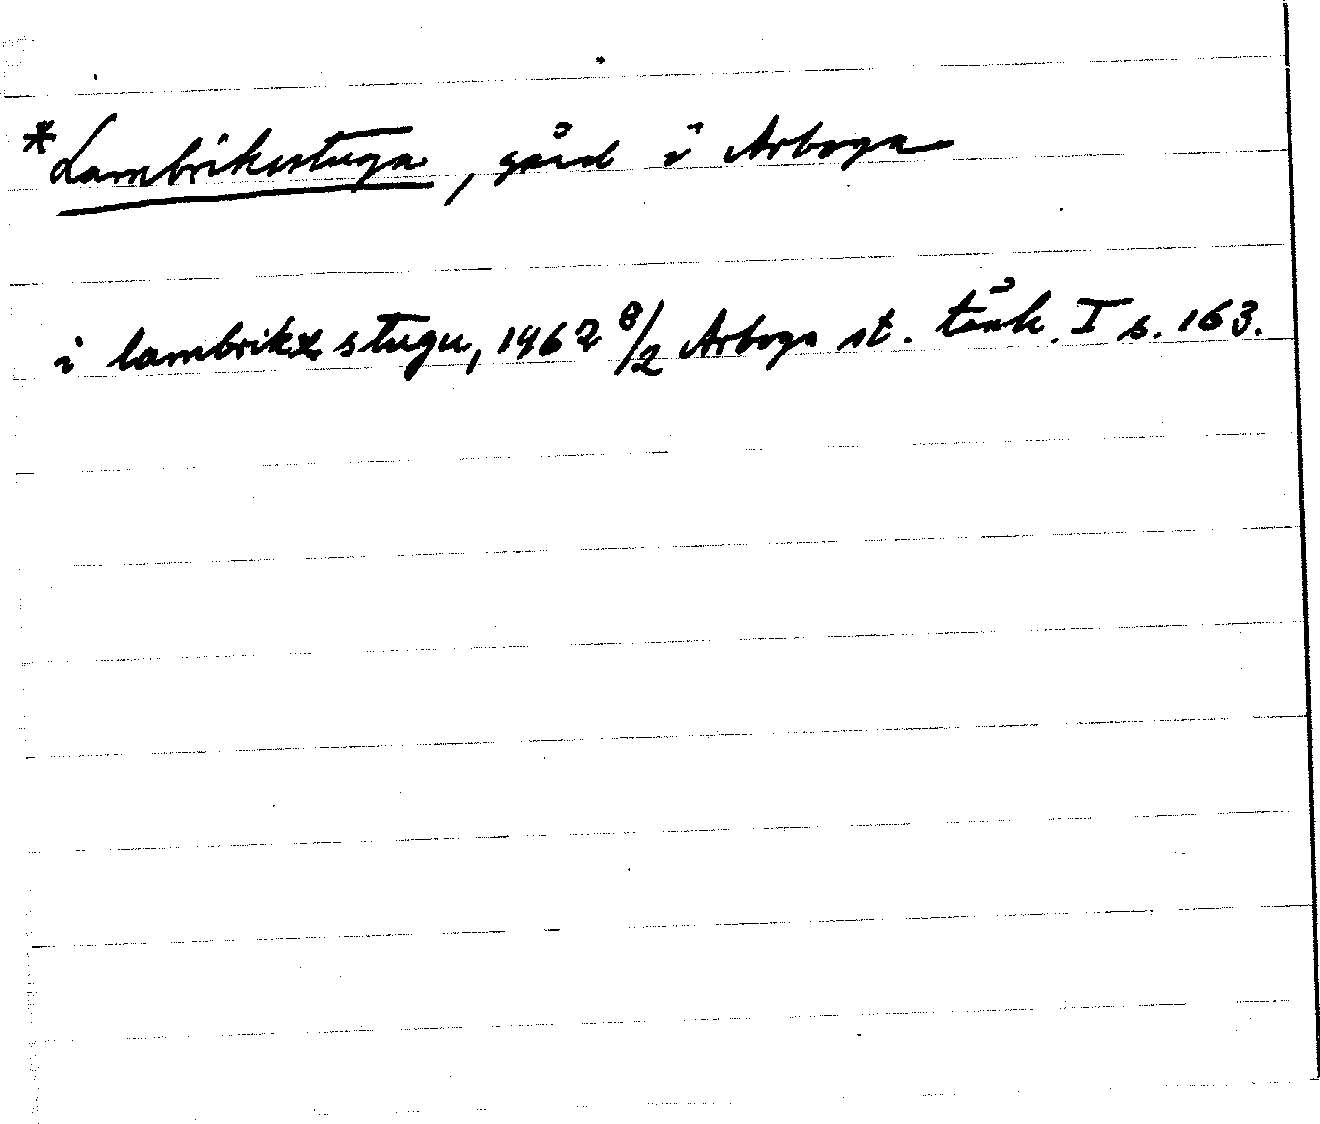 *Lambrikstuga, gård i Arboga
i lambrikx stugu, 1462 8/2 Arboga st. tänk. I s. 163.